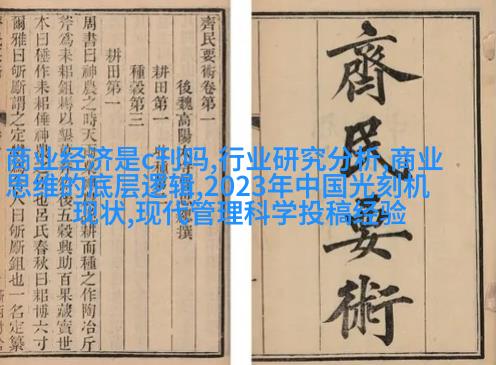 商业经济是c刊吗,行业研究分析,商业
思维的底层逻辑,2023年中国光刻机
现状,现代管理科学投稿经验
齊民要術
齊民要術卷第一
後魏高陽 撰
耕田第一
種穀第三
耕田第一
周書曰神農之時天雨 耕而種之作陶冶斤
斧爲耒耜鉏耨以墾 後五穀興助百果藏實世
本曰倕作耒耜倕神農 也呂氏春秋曰耜博六寸
爾雅曰斪斸謂之定 人曰斫斸鉏也一名定纂